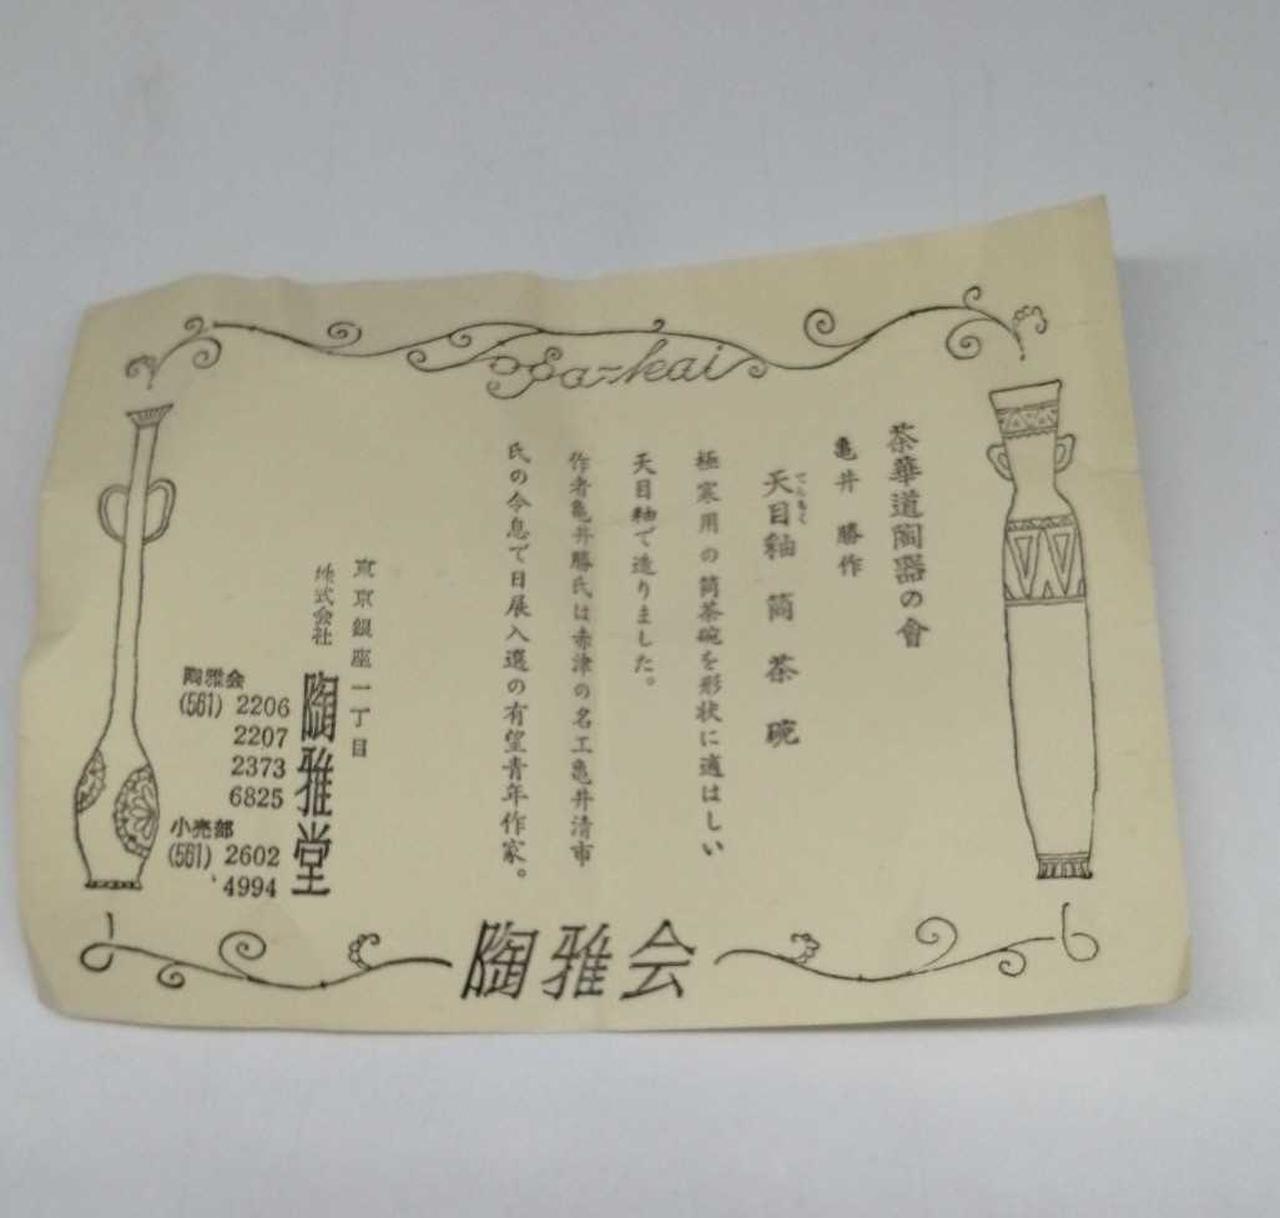 Ga-kai
茶華道陶器の會
亀井勝作
天目釉筒茶碗
てんもく
極寒用の筒茶碗を形状に適はしい
天目釉で造りました。
作者亀井勝氏は赤津の名工亀井清市
氏の令息で日展入選の有望青年作家。
東京銀座一丁目
株式会社 陶雅堂
陶雅会
(561) 2206
2207
2373
6825
小売部
(561) 2602
4994
陶雅会